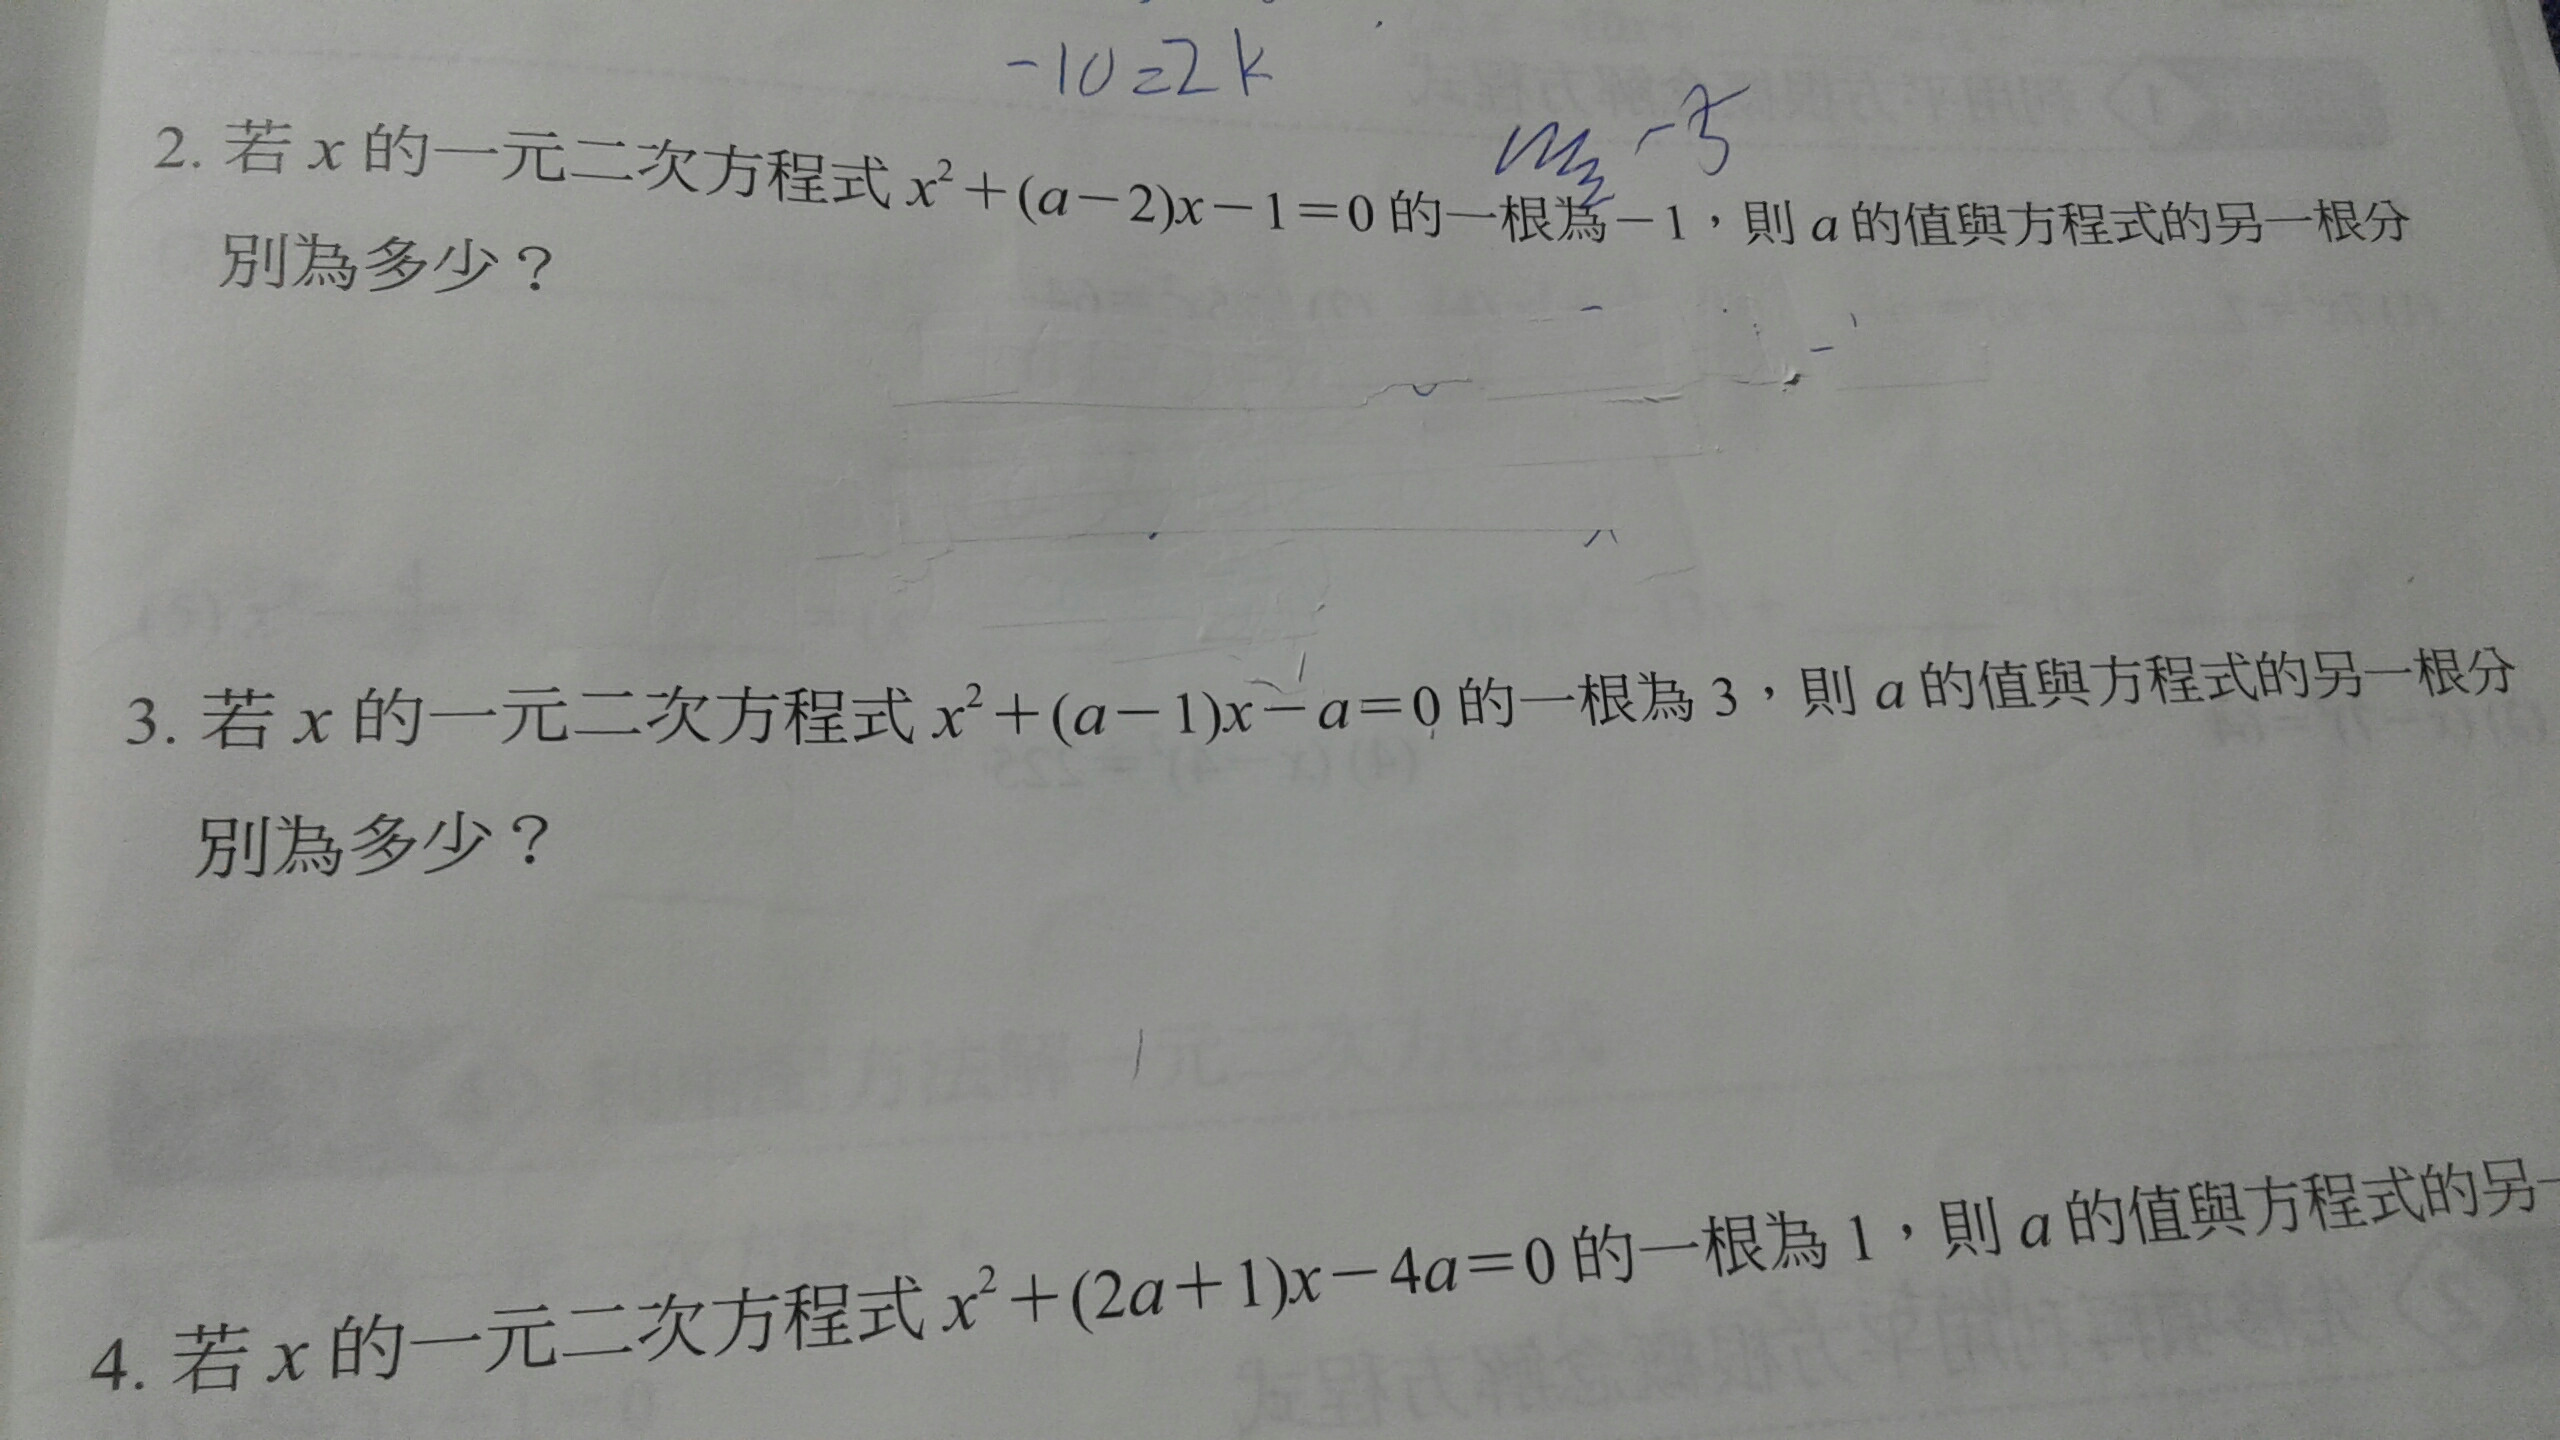 -10=2k
2. 若 x 的一元二次方程式 x²+(a-2)x-1=0 的一根為-1，則 a 的值與方程式的另一根分
別為多少？
3. 若 x 的一元二次方程式 x²+(a-1)x-a=0 的一根為 3，則 a 的值與方程式的另一根分
別為多少？
4. 若 x 的一元二次方程式 x²+(2a+1)x-4a=0 的一根為 1，則 a 的值與方程式的另一